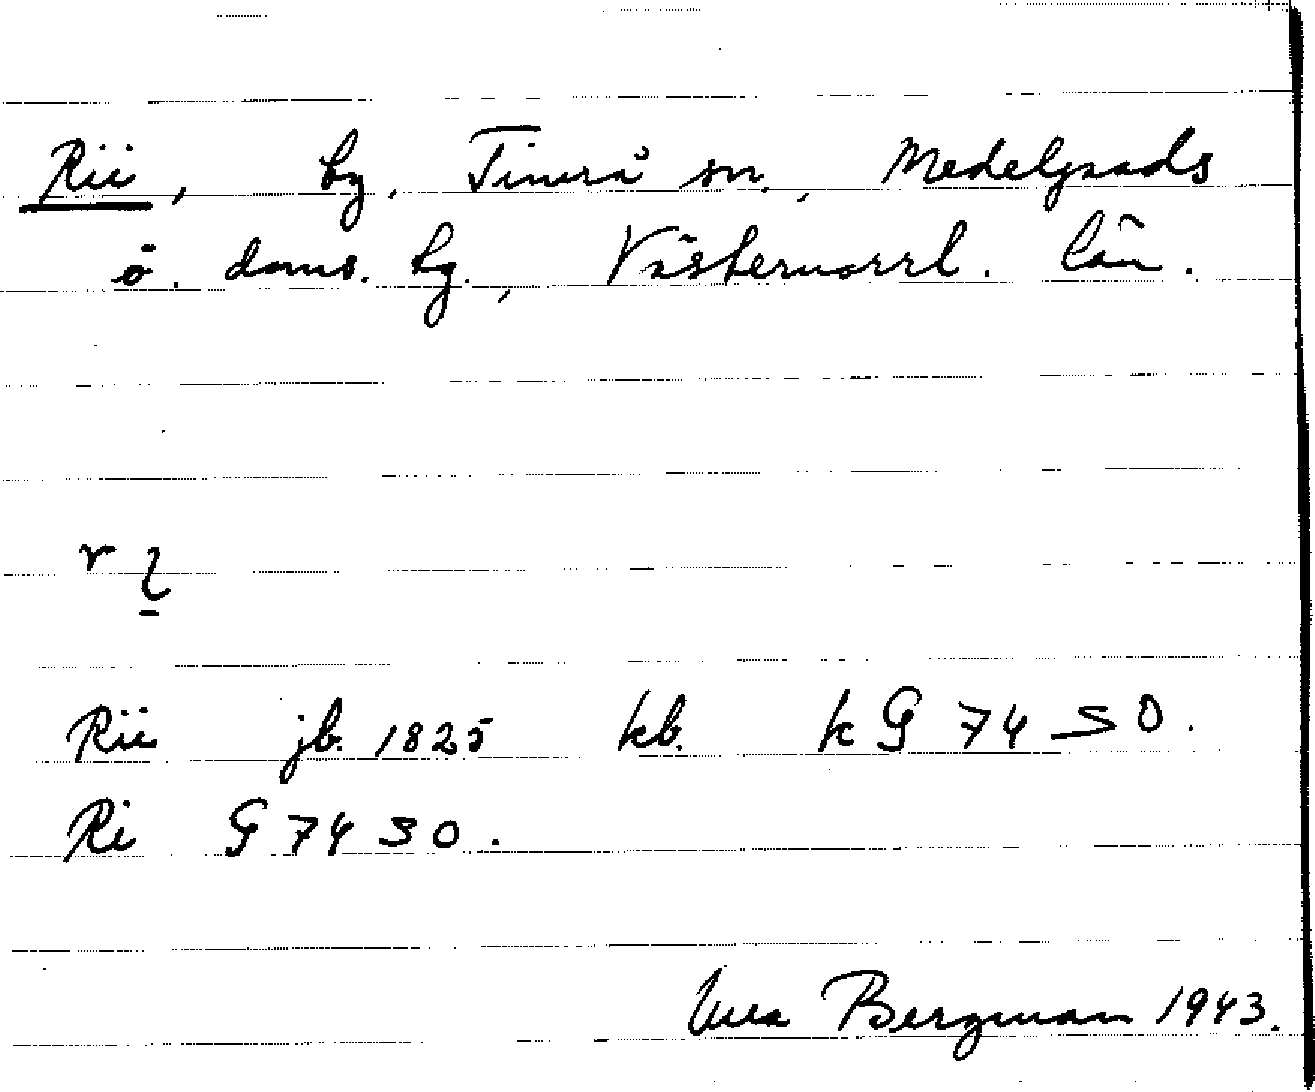 Rii, by, Timrå sn, Medelpads
ö. doms. hg., Västernorrl. län.
Rii jb. 1825 kb. k G 74 SO.
Ri G 74 SO.
Bergman 1943.